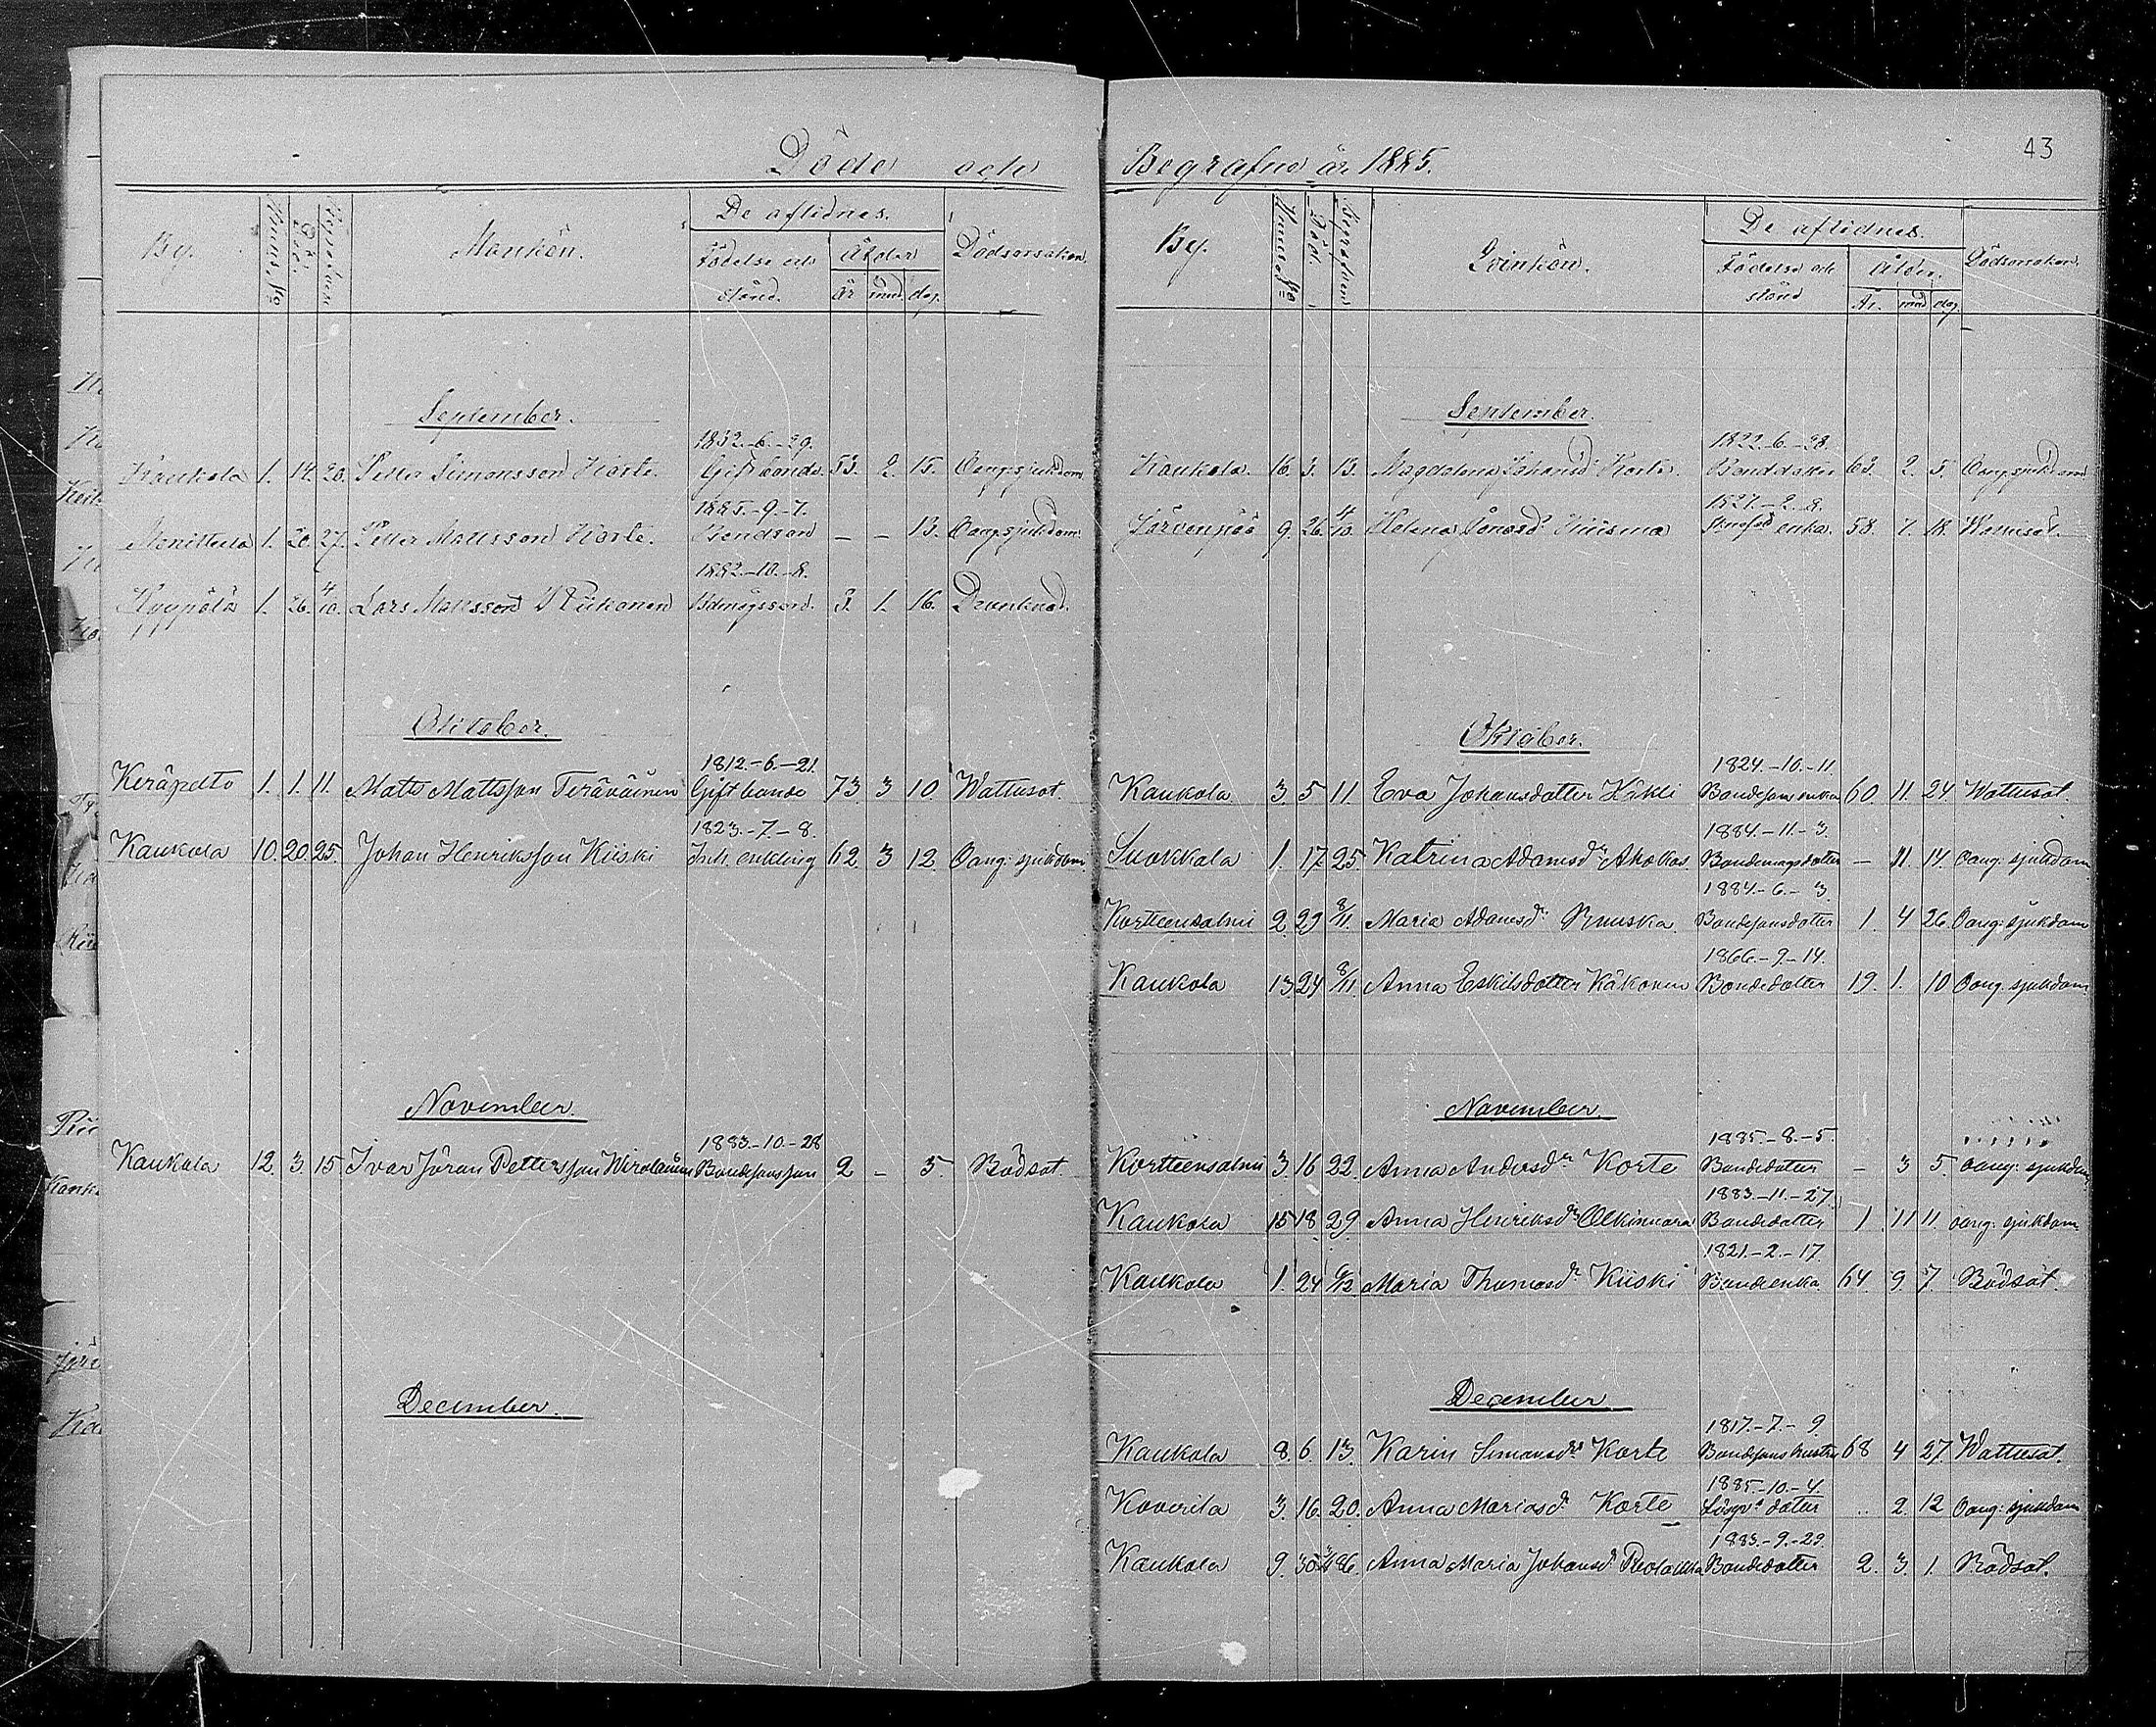 43
Döde och
By.
Hemm. No
Död.
Begrafven
Mankön.
De aflidnes.
Födelse och stånd.
Ålder
år mnd dag.
Dödsorsaken.
September.
1832.-6.-29.
Kaukola 1. 14. 20. Petter Simonsson Korte. Gift bonde. 53. 2. 15. Oang. sjukdom.
1885.-9.-7.
1. 20. 27. Petter Mattsson Korte. Bondson — — 13. Oang. sjukdom.
1882.-10.-8.
1. 26. 4/10. Lars Mattsson 3. 1. 16. Drunknad.
Oktober.
1812.-6.-21.
Keräpelto 1. 1. 11. Matts Mattsson Teräväinen Gift bonde 73. 3 10. Wattusot.
1823.-7.-8.
Kaukola 10. 20. 25. Johan Henriksson Kiiski Inh. enkling 62. 3 12. Oang. sjukdom.
November.
1883.-10.-28
Kaukola 12. 3. 15 Ivar Jöran Pettersson Wirolainen Bondsonsson 2 — 5. Rödsot.
December.
Begrafne år 1885.
By.
Hemm. No
Död.
Begrafven
Qvinkön.
De aflidnes.
Födelse och stånd
Ålder.
År. mnd dag.
Dödsorsaken.
September.
1822.-6.-28.
Kaukola. 16. 3. 13. Magdalena Johansd. Korte. 63. 2. 5. Oang. sjukdom
1827.-2.-8.
Järvenpää 9. 26. 4/10. Helena Kiisma enka. 58. 7. 18. Wattusot.
Oktober.
1824.-10.-11.
Kaukola 3. 5 11. Eva Johansdotter Häkli Bondesons enka 60 11. 24. Wattusot.
1884.-11.-3.
Suokkala 1. 17 25. Katrina Adamsdr Ahokas Bondemågsdotter — 11. 14. Oang. sjukdom
1884.-6.-3.
Kortteensalmi 2. 29 8/11. Maria Adamsdr Ruuska. Bondesonsdotter 1. 4 26. Oang. sjukdom
1866.-9.-14.
Kaukola 13. 24 8/11. Anna Eskilsdotter Käkönen Bondedotter 19. 1. 10 Oang. sjukdom
November.
1885.-8.-5.
Kortteensalmi 3. 16 22. Anna Andersdr Korte Bondedotter — 3 5. Oang. sjukdom
1883.-11.-27.
Kaukola 15 18 29 Anna Henriksdr Olkinuora Bondedotter 1 11 11. Oang. sjukdom
1821.-2.-17.
Kaukola 1. 24 6/12 Maria Thomasdr Kiiski Bondeenka. 64. 9. 7. Rödsot.
December
1817.-7.-9.
Kaukola 8. 6. 13. Karin Simonsdr Korte Bondesons hustru 68 4 27. Wattusot.
1885.-10.-4.
Koverila 3. 16. 20. Anna Mariasdr Korte dotter .. 2. 12 Oang. sjukdom
1883.-9.-29.
Kaukola 9. 30 Anna Maria Johansd. Bondedotter 2. 3. 1. Rödsot.